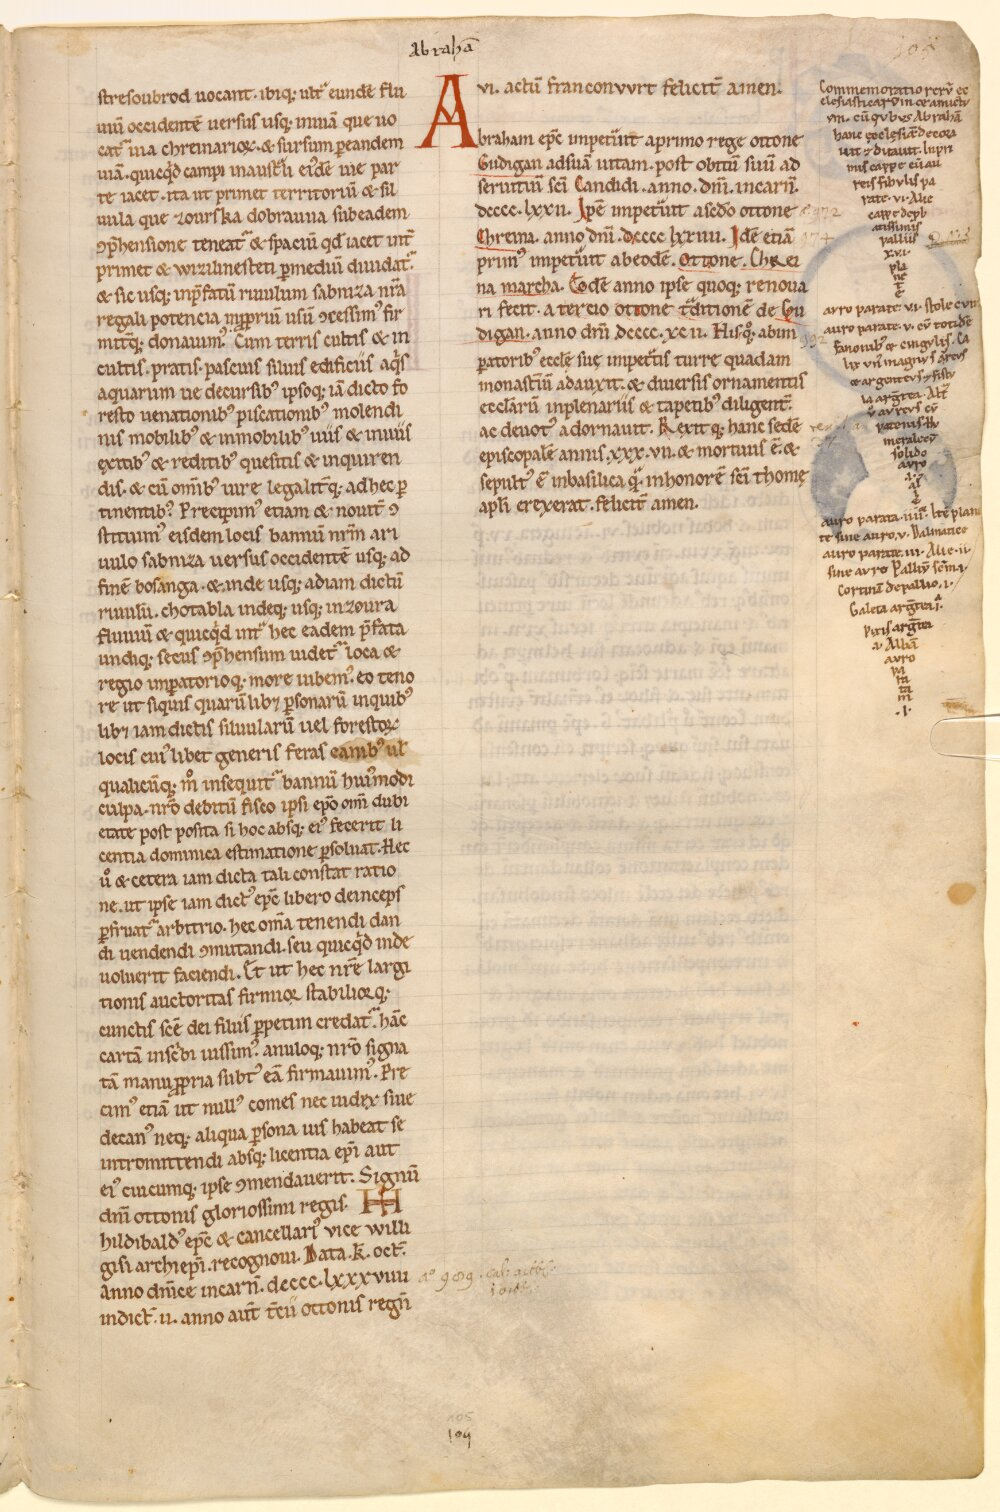 Abrahā
stresoubrod uocant. ibiq; ultᵃ eundē flu
uiū occidentē uersus usq; inuiā que uo
catᵃ uia chreinariorꝝ. & sursum peandem
uiā. quicqͥd campi inausteli eidē uie par
te iacet. ita ut primet territoriū & sil
uula que zourska dobrauua subeadem
ꝯphensione teneatᵃ & spaciū qd iacet intᵃ
primet & wizilinesteti pmediū diuidatᵃ.
& sic usq; inpfatū riuulum sabniza nrā
regali potencia inppriū usū ꝯcessimꝰ fir
mitq; donauimꝰ. Cum terris cultis & in
cultis. pratis. pascuis siluis edificiis aqͥs
aquarum ue decursibꝰ ipsoq; iā dicto fo
resto uenationibꝰ piscationibꝰ molendi
nis mobilibꝰ & inmobilibꝰ uiis & inuiis
exitibꝰ & reditibꝰ quesitis & inquiren
dis. & cū omībꝰ iure legalitq; adhec p
tinentibꝰ. Precipimꝰ etiam & nouit ꝯ
stituimꝰ eisdem locis bannū nrm a ri
uulo sabniza uersus occidentē usq; ad
finē bosanga. & inde usq; adiam dictū
riuulū. chotabla indeq; usq; inzoura
fluuiū & quicqͥd intᵃ hec eadem pfata
undiq; secus ꝯphensum uidetᵃ loca &
regio inpatorioq; more iubemꝰ. eo teno
re ut siquis quarūlibꝫ psonarū inquibꝰ
libꝫ iam dictis siluularū uel forestorꝝ
locis cuiꝰlibet generis feras canibꝰ ul
qualicūq; mͦ insequitᵃ bannū huiꝰmodi
culpa. nrō debitū fisco ipsi epō omī dubi
etate post posita si hoc absq; eiꝰ fecerit li
centia dominica estimatione psoluat. Hec
uͦ & cetera iam dicta tali constat ratio
ne. ut ipse iam dictꝰ epc libero deinceps
pfruatᵃ arbitrio. hec omīa tenendi dan
di uendendi ꝯmutandi. seu quicqͥd inde
uoluerit faciendi. Et ut hec nrē largi
tionis auctoritas firmiorꝗ stabiliorq;
cunctis scē dei filiis ppetim credatᵃ. hāc
cartā inscͥbi iussimꝰ. anuloq; nrō signa
tā manuppria subtꝰ eā firmauimꝰ. Pre
cimꝰ etiā ut nullꝰ comes nec iudex siue
decanꝰ neq; aliqua psona ius habeat se
intromittendi absq; licentia epī aut
eiꝰ cuicumq; ipse ꝯmendauerit. Signū
dn̄i ottonis gloriossimi regis.
hildibaldꝰ epc & cancellariꝰ vice willi
gisi archiepī. recognoui. Data. k. octᵇ.
Anno dn̄ice incarn̄. dcccc. lxxxviiii
indict. ii. anno aut tcii ottonis regn̄
aͦ 989
vi. actū franconvurt felicit amen.
Abraham epc inpetiuit aprimo rege ottone
Gudigan adsuā uitam. post obitū suū ad
seruitiū scī Candidi. anno. dn̄i. incarn̄.
dcccc. lxxii. Ipē inpetiuit asedo ottone
Chreina. anno dn̄i. dcccc lxxiiii. Idē etiā
primꝰ inpetiuit abeodē. Ottone. Chrei
na marcha. Eodē anno ipse quoq; renoua
ri fecit. a tercio ottone tditionē de Gu
digan. anno dn̄i dcccc. xc ii. Hisq; abim
patoribꝰ ecclē suę inpetitis turrē quadam
monastiū adauxit. & diuersis ornamentis
ecclarū inplenariis & tapetibꝰ diligent.
ac deuotꝰ adornauit. Rexitq; hanc sedē
episcopalē annis. xxx. vii. & mortuus ē. &
sepultꝰ ē inbasilica qᵃ inhonorē scī thomę
aplī erexerat. felicit amen.
972
974
992
Commemoratio rerū ec
clesiasticarum ceramictv
ɱ. cū qvbvs Abrahā
hanc ecclesiā decora
uit & ditauit. Inpri
mis cappe cū au
reis fibvlis pa
rate. vi. Alie
cappe depb
atissimis
palliis
xvi.
pla
ne
t
ē
avro parate. vi. stole cvm
auro parate. v. cv totidē
fanonibꝰ & cingvlis. Ca
lix vnꝰ magnvs arevs
& argentevs & fistv
la argtea. Alt
v avrevs cv
patenis &
solido
avro
avro parata. iiii. lte plane
te sine avro. v. Dalmatice
avro parate. iii. Alie. ii.
sine avro Palliv sem. i.
Cortina depallio. i.
Galeta argtea. i.
Pixis argtea
i. Albā
avro
pa
ra
ta
m
.i.
105
109